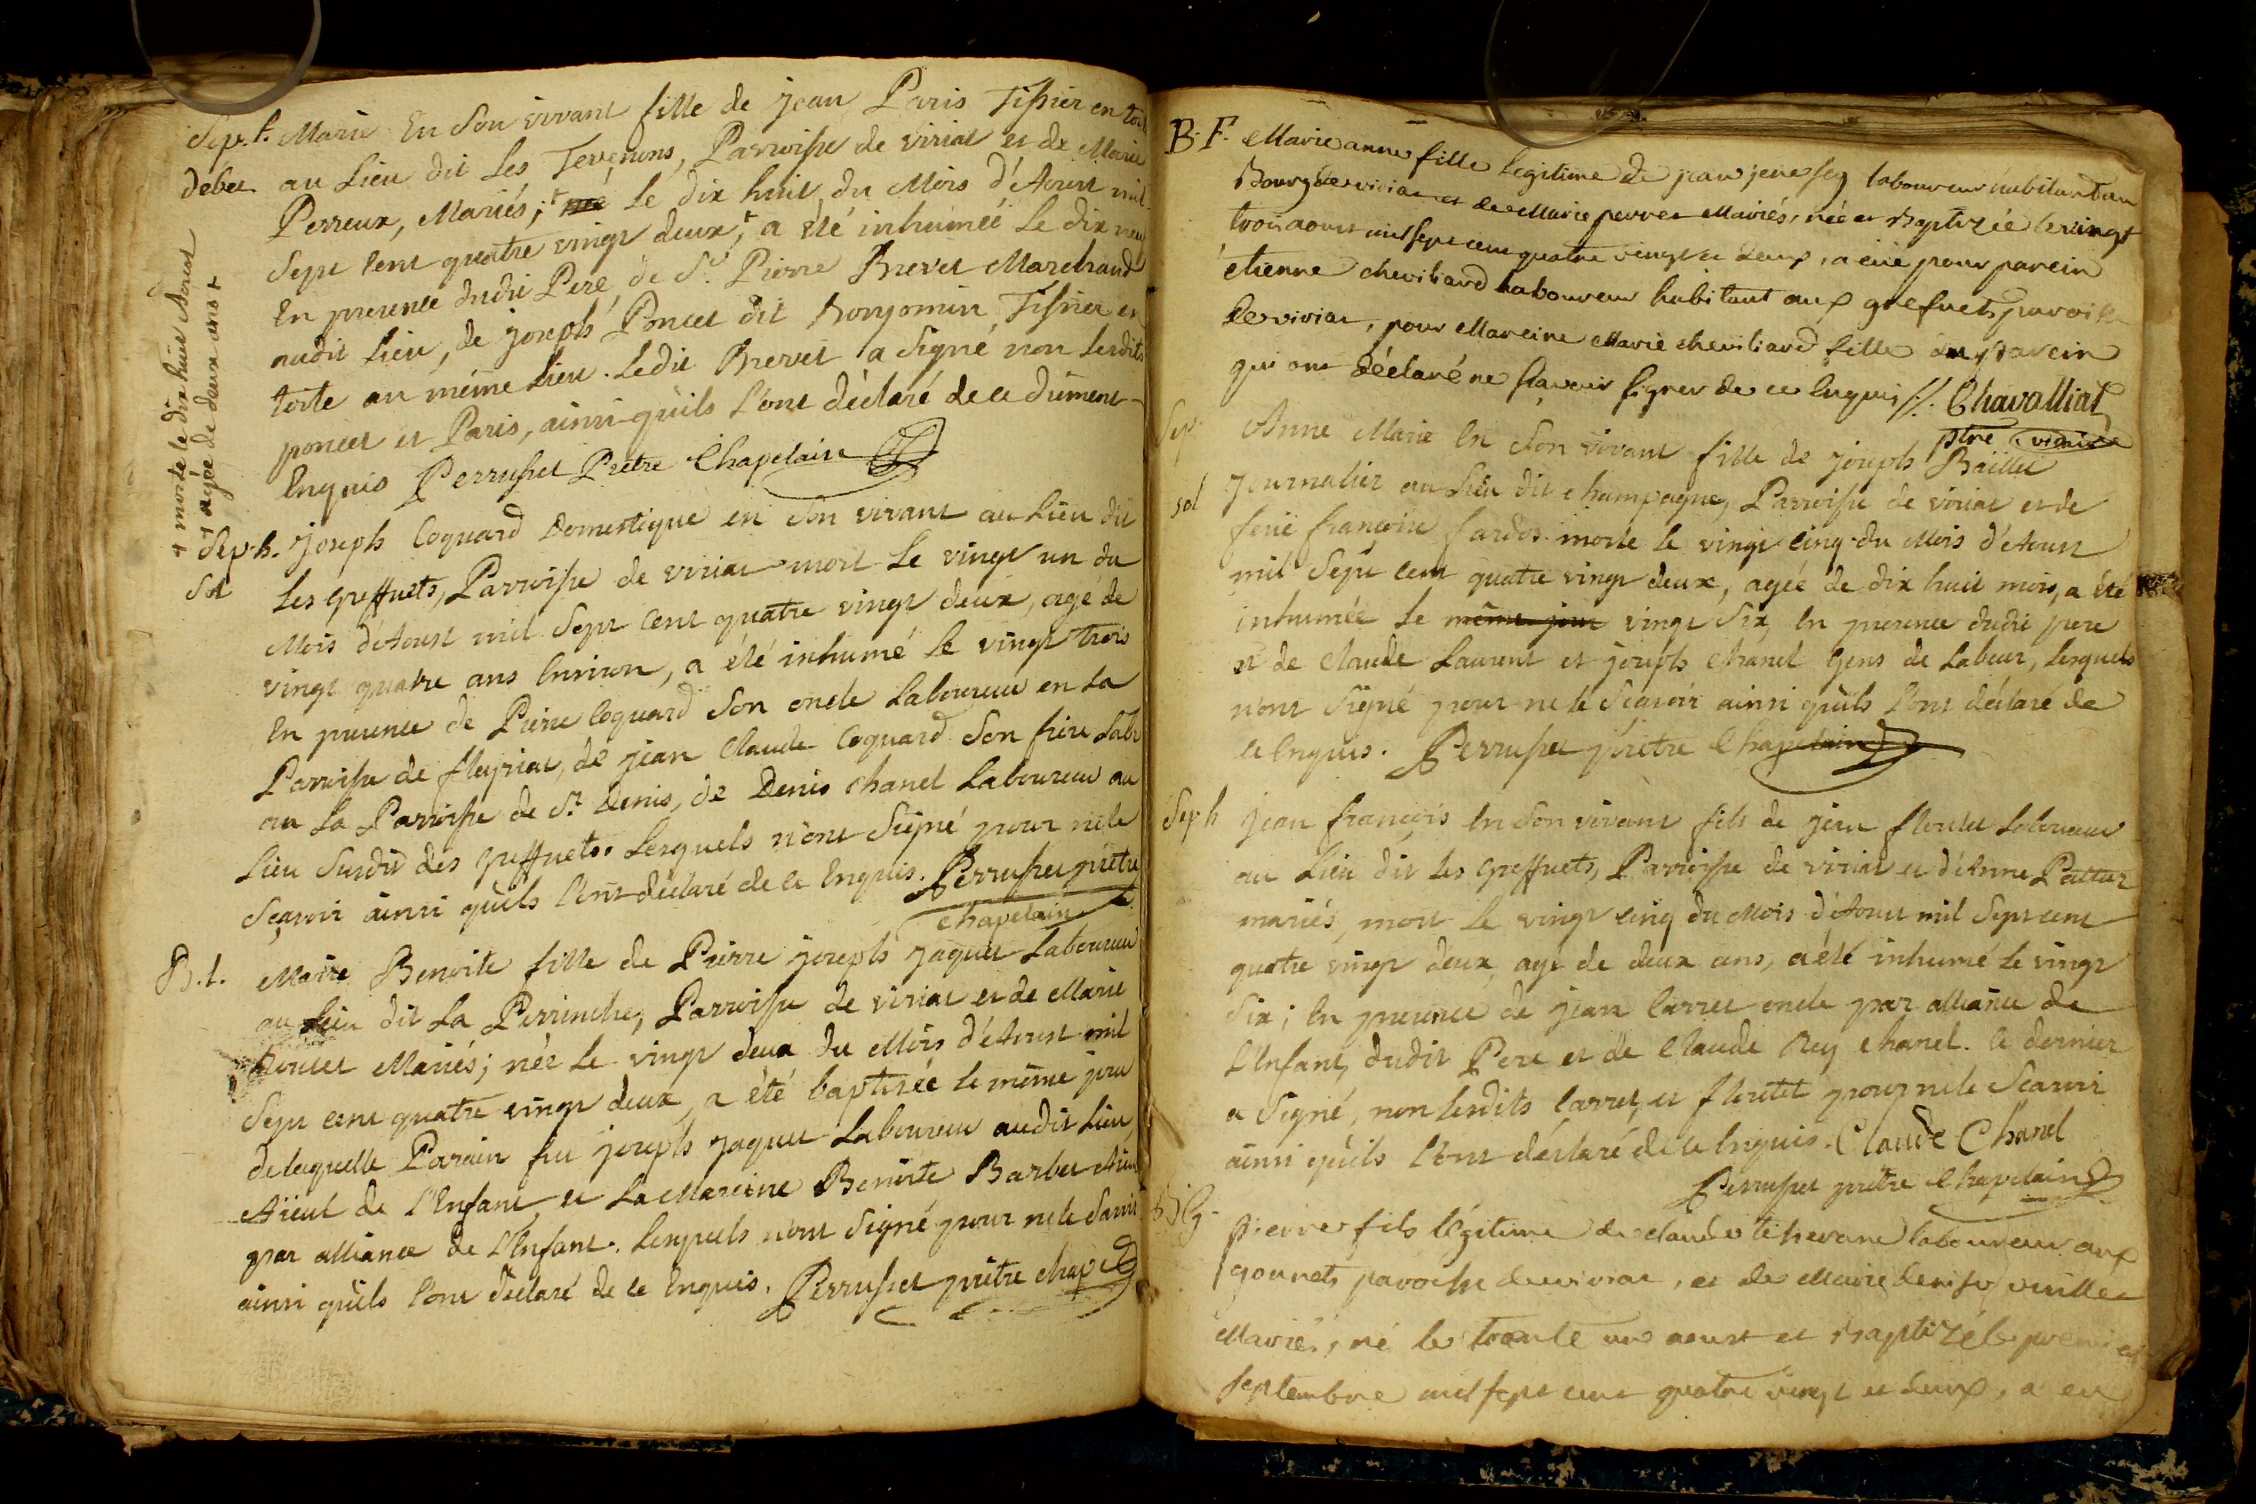 Sep. f. Marie En Son vivant fille de jean Paris Tissier en toile
débet au Lieu dit Les Tevenons, Parroisse de viriat et de Marie
Perreux, Mariés; + né Le dix huit du Mois d'Aoust mil
Sept Cent quatre vingt deux, + a été inhumée Le dix neuf
En presence dudit Pere, de Sr. Pierre Brevet Marchand
audit Lieu, de joseph Poncet dit Bonjomin, Tissier en
toile au même Lieu. Ledit Brevet a Signé non Lesdits
poncet et Paris, ainsi qu'ils L'ont déclaré de ce dument
Enquis Perrusset Prêtre Chapelain
+ morte le dix huit Aoust
+ agée de deux ans +
Sep. h. joseph Coquard Domestique en Son vivant au Lieu dit
Sol Les Greffuets, Parroisse de viriat mort Le vingt un du
Mois d'Aoust mil Sept Cent quatre vingt deux, agé de
vingt quatre ans Environ, a été inhumé le vingt trois
En presence de Pierre Coquard Son oncle Laboureur en La
Parroisse de fleyriat, de jean Claude Coquard Son frere Labr
au La Parroisse de St. Denis, de Denis Chanel Laboureur au
Lieu Susdit des Greffuets. Lesquels n'ont Signé pour ne le
Sçavoir ainsi qu'ils L'ont déclaré de ce Enquis. Perrusset prêtre
Chapelain
B. f. Marie Benoite fille de Pierre joseph jaquet Laboureur
au Lieu dit La Perrinche, Parroisse de viriat et de Marie
Poncet Mariés; née Le vingt deux du Mois d'Aoust mil
Sept cent quatre vingt deux, a été baptisée le même jour
de laquelle Parain fut joseph jaquet Laboureur audit Lieu,
Aïeul de L'Enfant, et La Mareine Benoite Barbet
par alliance de L'Enfant. Lesquels n'ont Signé pour ne le Savoir
ainsi qu'ils L'ont déclaré de ce Enquis. Perrusset prêtre chapel
B. F. Marie anne fille legitime de jean laboureur habitant au
Bourg de viriat et de Marie perret Mariés, née et Baptizée le vingt
trois aoust mil sept cent quatre vingt et deux, a eüe pour parein
étienne cheviliard Laboureur habitant aux grefuets paroisse
de viriat, pour Mareine Marie cheviliard fille du parein
qui ont déclaré ne sçavoir signer de ce Enquis //. Chavalliat
ptre vicaire
Sep. Anne Marie En Son vivant fille de joseph Baillet
sol journalier au Lieu dit Champagne, Parroisse de viriat et de
feüe françoise fardos morte le vingt cinq du Mois d'Aoust
mil Sept cent quatre vingt deux, agée de dix huit mois, a été
inhumée Le même jour vingt Six, En presence dudit pere
et de Claude Laurent et joseph Chanel Gens de Labeur, Lesquels
n'ont Signé pour ne le Sçavoir ainsi qu'ils L'ont déclaré de
ce Enquis. Perrusset prêtre Chapelain
Sep. h jean françois En Son vivant fils de jean floutet Laboureur
au Lieu dit Les Greffuets, Parroisse de viriat et d'Anne
mariés, mort Le vingt Cinq du Mois d'Aoust mil Sept cent
quatre vingt deux, agé de deux ans, a été inhumé Le vingt
Six; En presence de jean Carret oncle par alliance de
L'Enfant, dudit Pere et de Claude Rey Chanel. Ce dernier
a Signé, non lesdits Carret et floutet pour ne le Sçavoir
ainsi qu'ils L'ont déclaré de ce Enquis. Claude Chanel
Perrusset prêtre Chapelain
B. G. Pierre fils légitime de claude laboureur aux
gounets paroisse de viriat, et de Marie denise veuillet
Mariés, né le trente un aoust et Baptizé le premier
septembre mil sept cent quatre vingt et deux, a eu